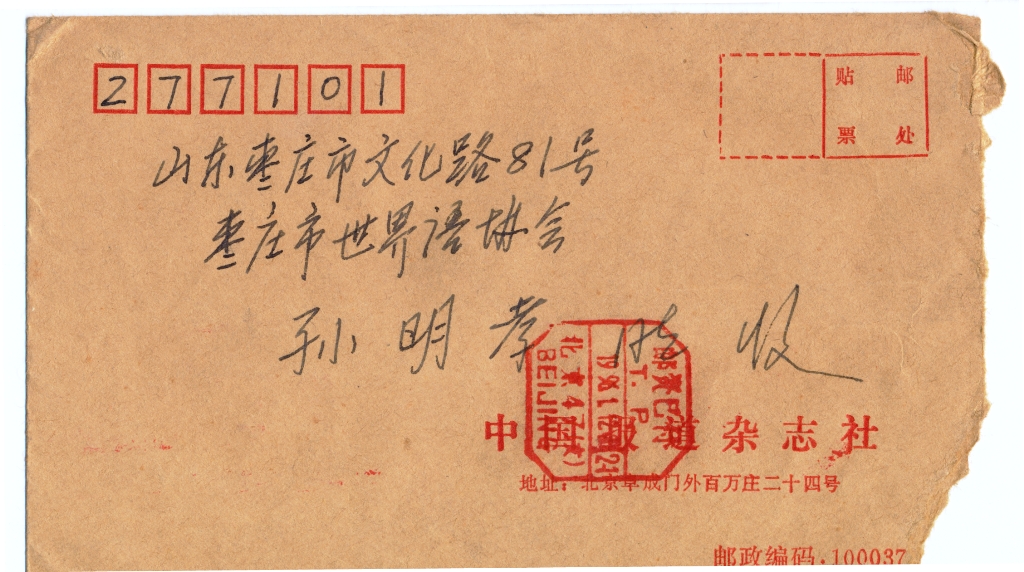 277101
贴 邮
票 处
山东枣庄市文化路81号
枣庄市世界语协会
孙明孝 收
邮资已付
T. P.
北京47
BEIJING
中国报道杂志社
地址：北京阜成门外百万庄二十四号
邮政编码·100037